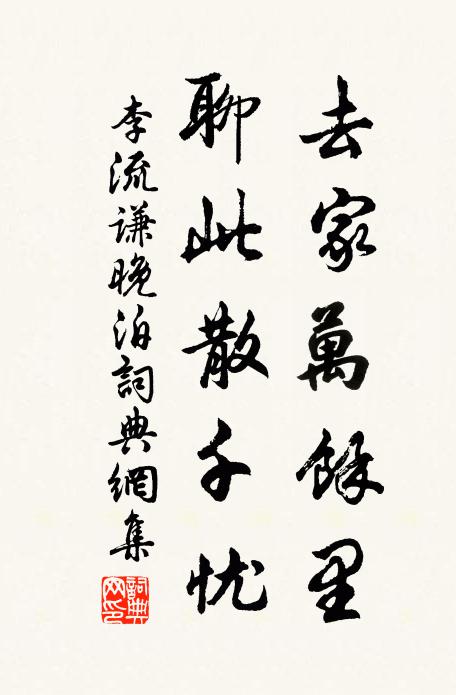 去家萬餘里
聊此散千忧
李流谦晚泊詞典網集
詞典网印